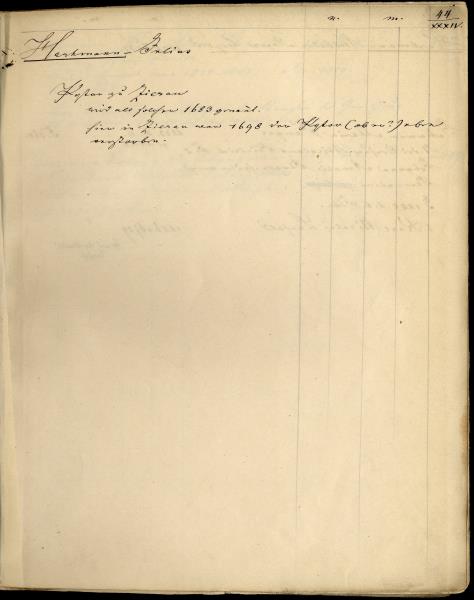 n. m. 44
XXXIV.
Heckmann
Pastor zu Zierau
wird als solcher 1683 genant.
hier in Zierau war 1698 der Pastor (aber?) Jahre
verstorben.